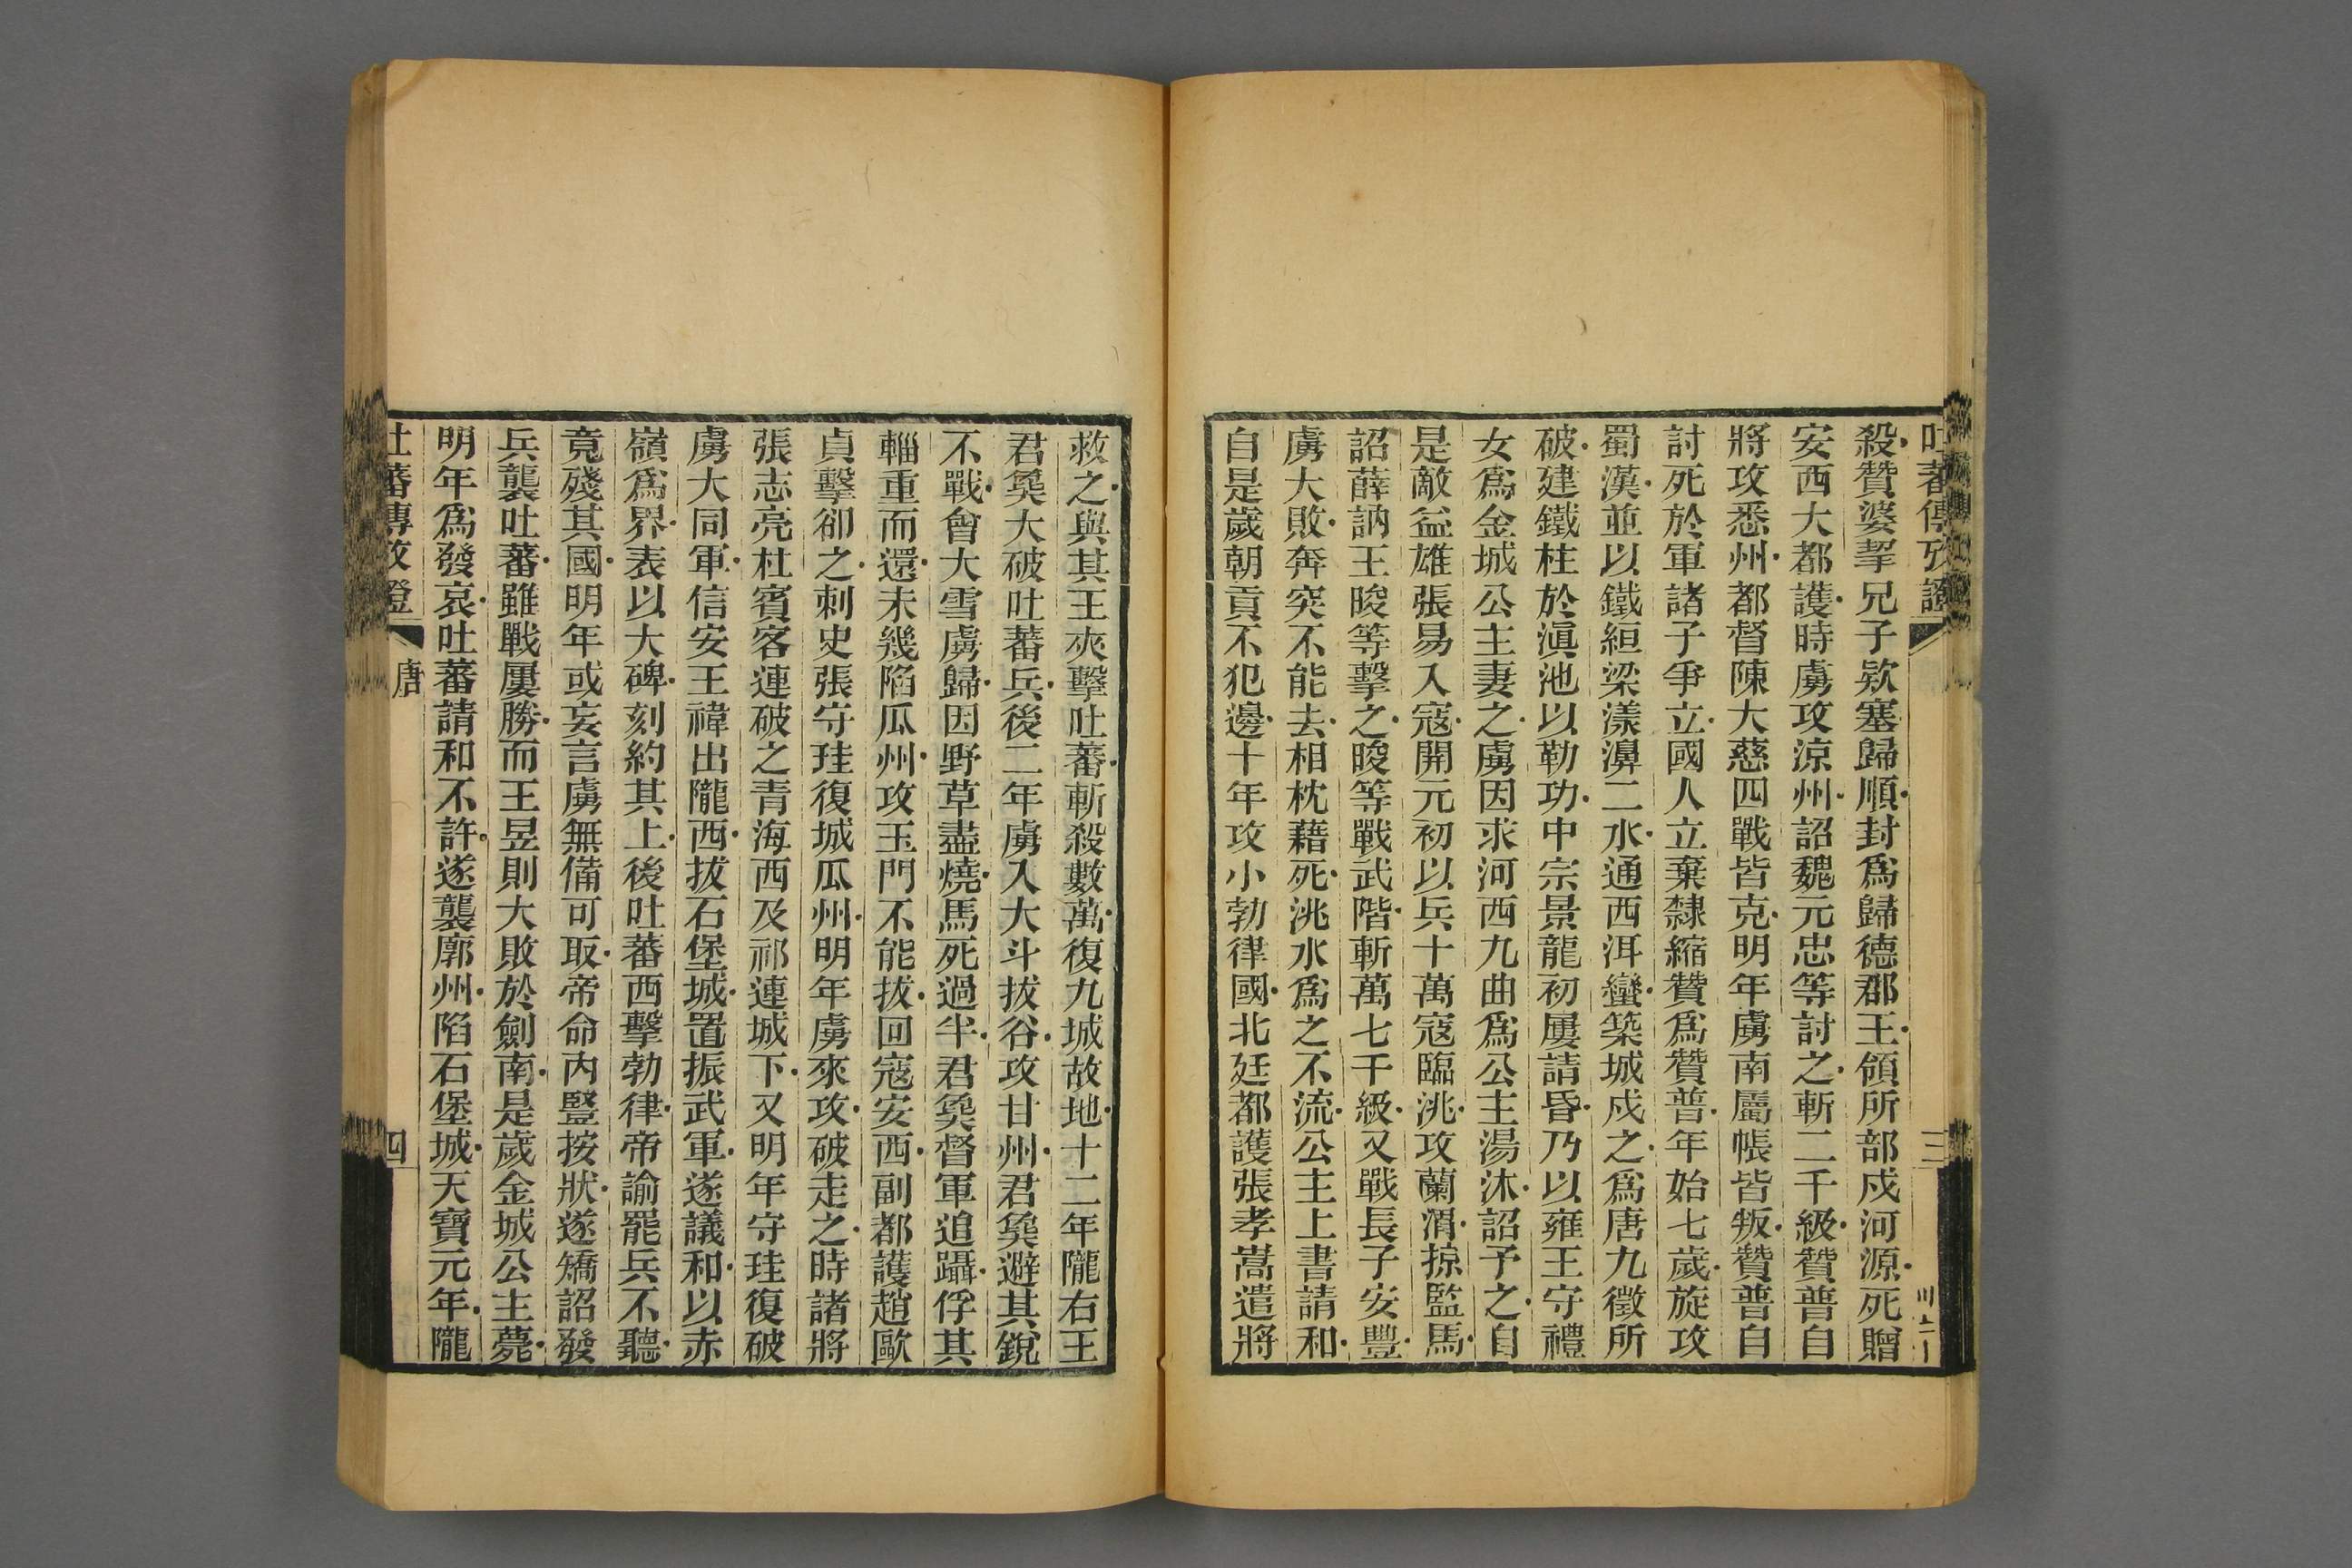 吐蕃傳攷證
三
殺贊婆挈兄子欵塞歸順封爲歸德郡王領所部戍河源死贈
安西大都護時虜攻涼州詔魏元忠等討之斬二千級贊普自
將攻悉州都督陳大慈四戰皆克明年虜南屬帳皆叛贊普自
討死於軍諸子爭立國人立棄隸縮贊爲贊普年始七歲旋攻
蜀漢並以鐵絙梁漾濞二水通西洱蠻築城戍之爲唐九徵所
破建鐵柱於滇池以勒功中宗景龍初屢請昏乃以雍王守禮
女爲金城公主妻之虜因求河西九曲爲公主湯沐詔予之自
是敵益雄張易入寇開元初以兵十萬寇臨洮攻蘭渭掠監馬
詔薛訥王晙等擊之晙等戰武階斬萬七千級又戰長子安豐
虜大敗奔突不能去相枕藉死洮水爲之不流公主上書請和
自是歲朝貢不犯邊十年攻小勃律國北廷都護張孝嵩遣將
救之與其王夾擊吐蕃斬殺數萬復九城故地十二年隴右王
君㚟大破吐蕃兵後二年虜入大斗拔谷攻甘州君㚟避其銳
不戰會大雪虜歸因野草盡燒馬死過半君㚟督軍追躡俘其
輜重而還未幾陷瓜州攻玉門不能拔回寇安西副都護趙歐
貞擊卻之刺史張守珪復城瓜州明年虜來攻破走之時諸將
張志亮杜賓客連破之青海西及祁連城下又明年守珪復破
虜大同軍信安王禕出隴西拔石堡城置振武軍遂議和以赤
嶺爲界表以大碑刻約其上後吐蕃西擊勃律帝諭罷兵不聽
竟殘其國明年或妄言虜無備可取帝命內豎按狀遂矯詔發
兵襲吐蕃雖戰屢勝而王昱則大敗於劍南是歲金城公主薨
明年爲發哀吐蕃請和不許遂襲廓州陷石堡城天寶元年隴
吐蕃傳攷證
唐
四